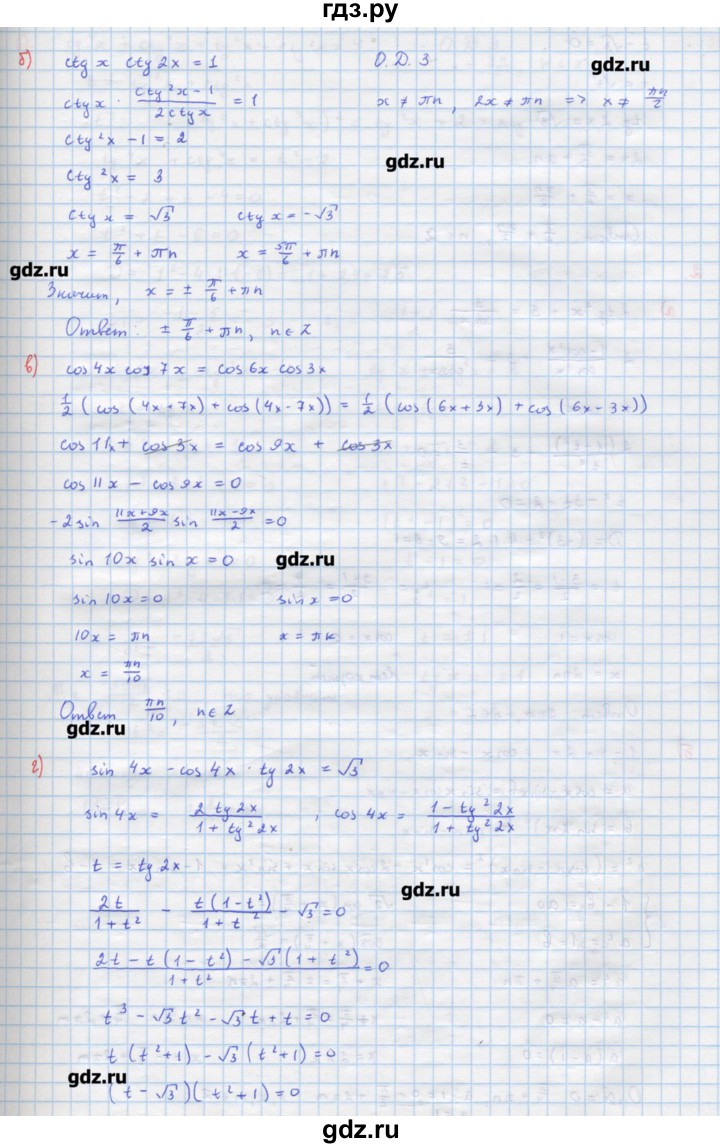 гдз.ру
б) ctg x ctg 2x = 1 О.Д.З
gdz.ru
ctg x · (ctg²x - 1)/(2ctgx) = 1 x ≠ πn, 2x ≠ πn => x ≠ πn/2
ctg²x - 1 = 2
gdz.ru
ctg²x = 3
ctg x = √3 ctg x = -√3
x = π/6 + πn x = 5π/6 + πn
gdz.ru
Значит, x = ± π/6 + πn
Ответ: ± π/6 + πn, n∈Z
в) cos4x cos7x = cos6x cos3x
1/2 (cos(4x+7x) + cos(4x-7x)) = 1/2 (cos(6x+3x) + cos(6x-3x))
cos11x + cos3x = cos9x + cos3x
cos11x - cos9x = 0
-2sin (11x+9x)/2 sin (11x-9x)/2 = 0
sin10x sin x = 0
gdz.ru
sin10x = 0 sin x = 0
10x = πn x = πк
x = πn/10
Ответ πn/10, n∈Z
gdz.ru
г) sin 4x - cos 4x · tg 2x = √3
sin 4x = (2 tg 2x)/(1 + tg²2x), cos 4x = (1 - tg²2x)/(1 + tg²2x)
t = tg 2x
gdz.ru
2t/(1+t²) - t(1-t²)/(1+t²) - √3 = 0
(2t - t(1-t²) - √3(1+t²))/(1+t²) = 0
t³ - √3t² - √3t + t = 0
t(t²+1) - √3(t²+1) = 0
gdz.ru
(t - √3)(t²+1) = 0
gdz.ru